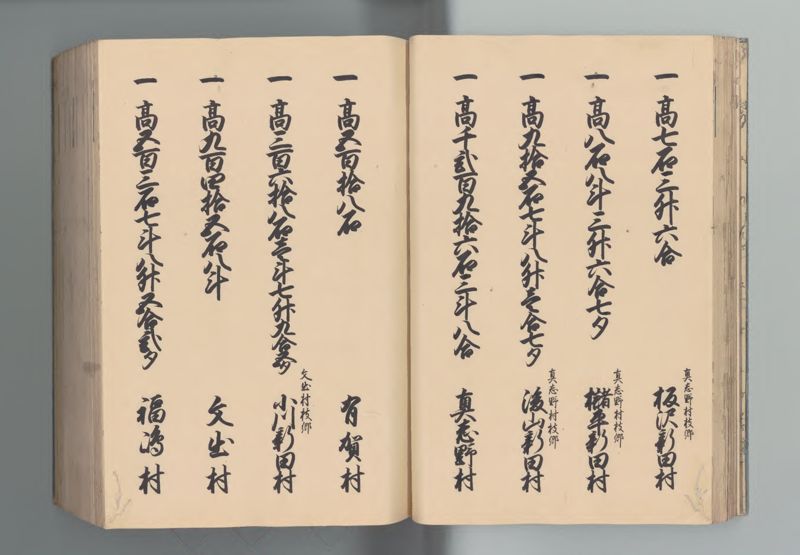 一 高七石三升六合
真志野村枝郷
板沢新田村
一 高八石八斗三升六合七夕
真志野村枝郷
椹平新田村
一 高九拾五石七斗八升壱合七夕
真志野村枝郷
後山新田村
一 高千弐百九拾六石三斗八合
真志野村
一 高五百拾八石
有賀村
一 高三百六拾八石壱斗七升九合
文出村枝郷
小川新田村
一 高九百四拾五石八斗
文出村
一 高五百三石七斗八升五合弐夕
福嶋村